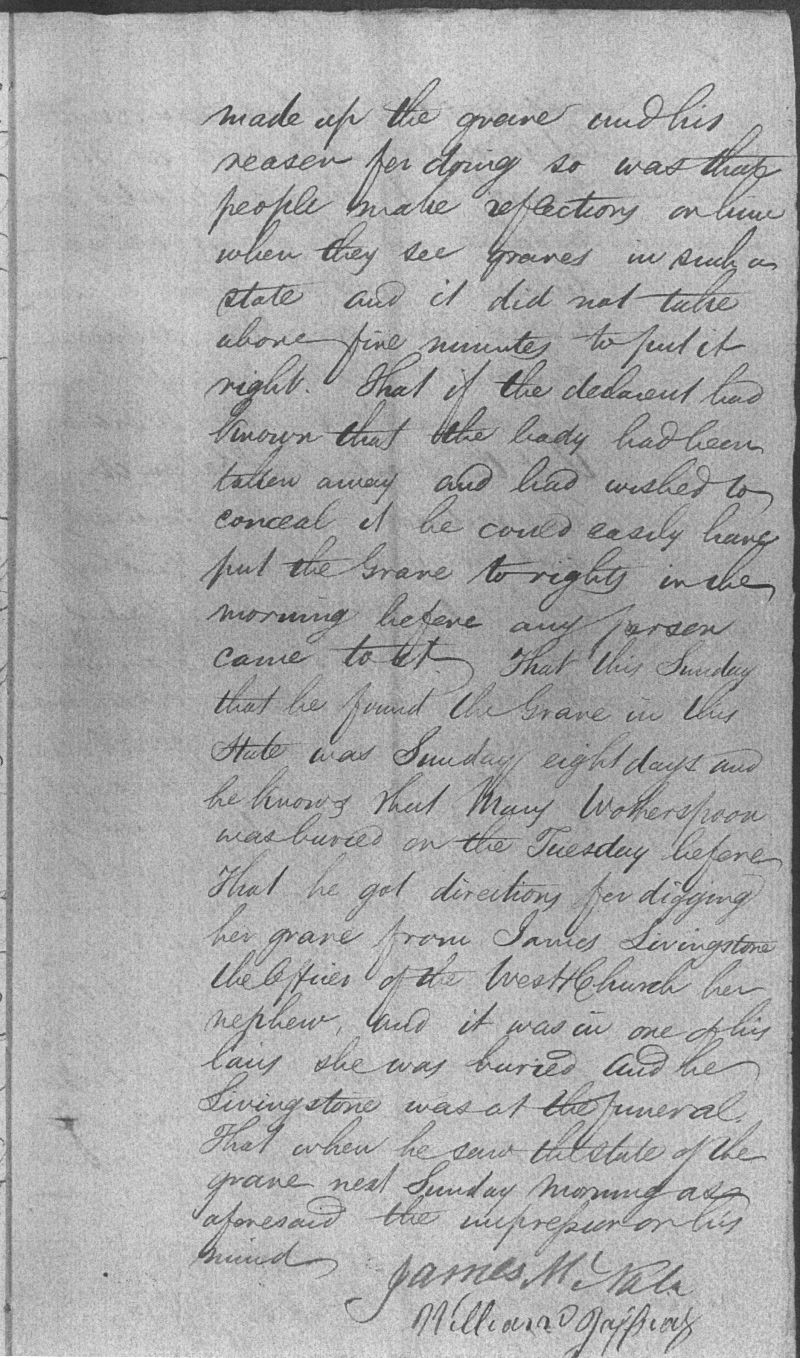 made up the grave and his
reason for doing so was that
people make reflections on him
when they see graves in such a
state and it did not take
above five minutes to put it
right. That if the declarent had
known that the body had been
taken away and had wished to
conceal it he could easily have
put the Grave to rights in the
morning before any person
came to it. That this Sunday
that he found the Grave in this
State was Sunday eight days and
he knows that Mary Wotherspoon
was buried on the Tuesday before
That he got directions for digging
her grave from James Livingstone
the Officer of the West Church her
nephew, and it was in one of his
lairs she was buried and he
Livingstone was at the funeral.
That when he saw the state of the
grave next Sunday morning as
aforesaid the impression on his
mind
James Mc
William